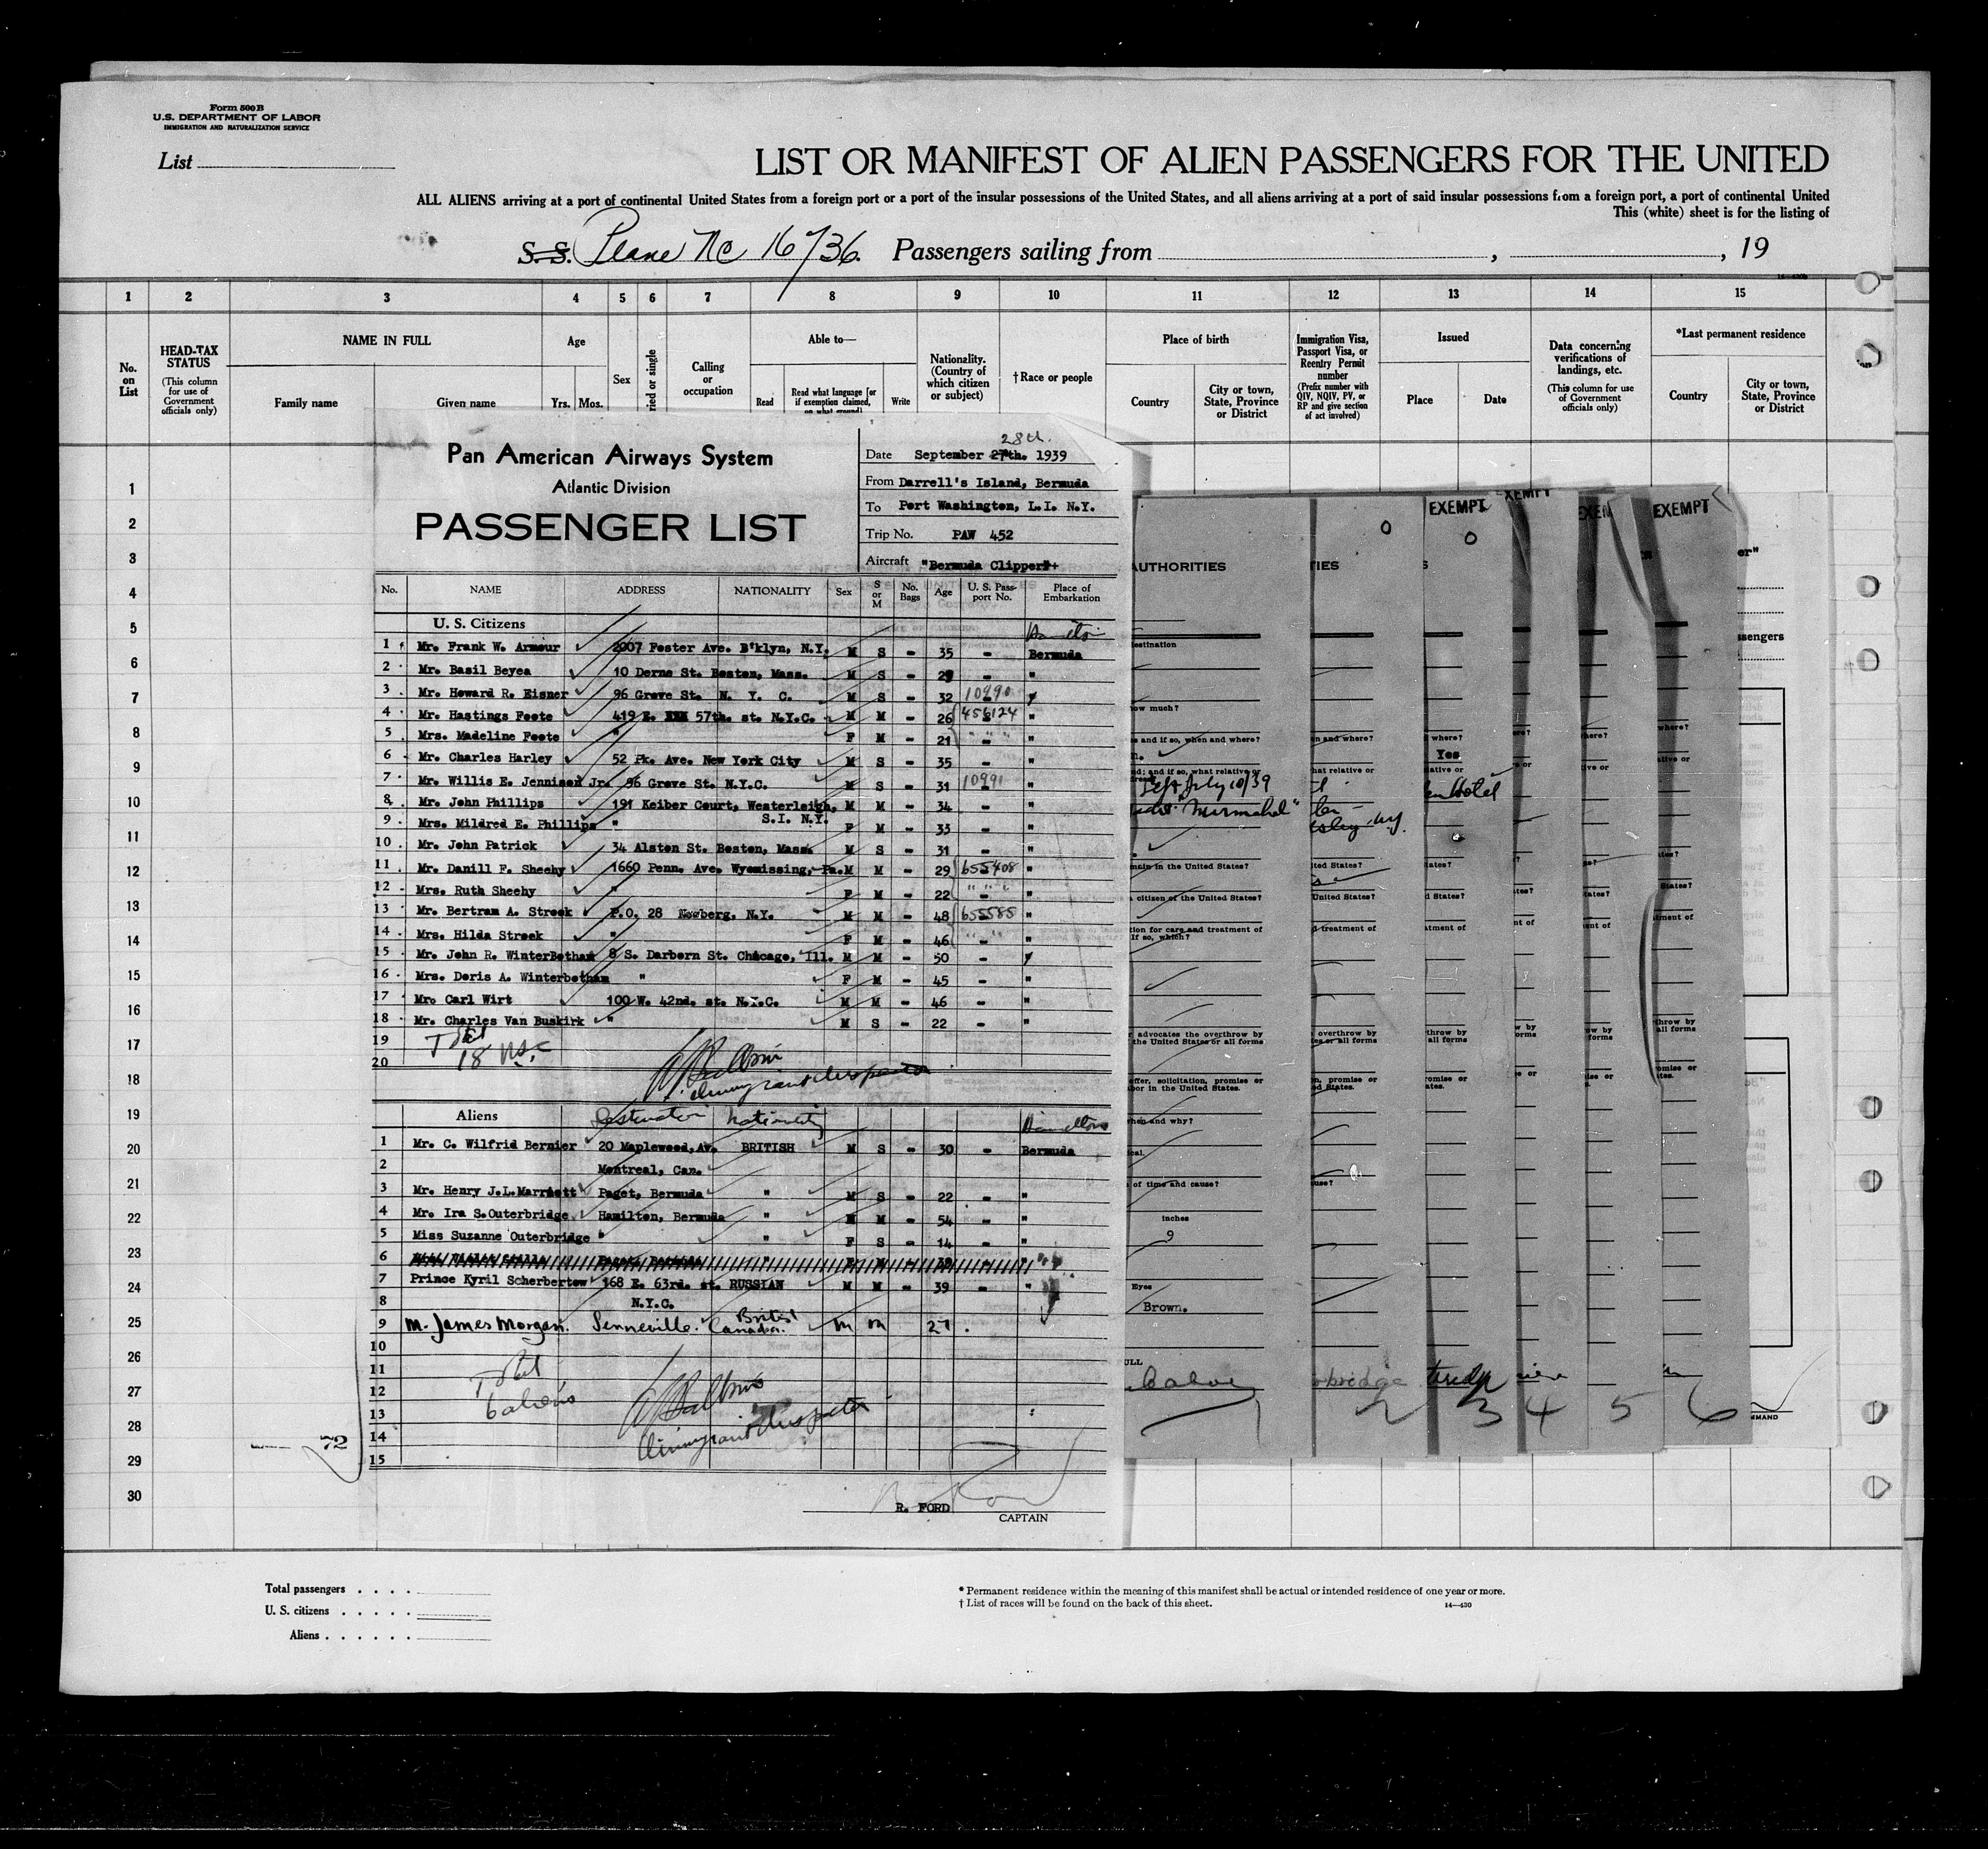 Form 500B
U.S. DEPARTMENT OF LABOR
IMMIGRATION AND NATURALIZATION SERVICE
List
LIST OR MANIFEST OF ALIEN PASSENGERS FOR THE UNITED
ALL ALIENS arriving at a port of continental United States from a foreign port or a port of the insular possessions of the United States, and all aliens arriving at a port of said insular possessions from a foreign port, a port of continental United
This (white) sheet is for the listing of
S.S. Plane NC 16736. Passengers sailing from , , 19
1 2 3 4 5 6 7 8 9 10 11 12 13 14 15
No. on List
HEAD-TAX STATUS
(This column for use of Government officials only)
NAME IN FULL
Family name Given name
Age
Yrs. Mos.
Sex
ried or single
Calling or occupation
Able to—
Read
Read what language [or if exemption claimed, on what ground]
Write
Nationality. (Country of which citizen or subject)
†Race or people
Place of birth
Country
City or town, State, Province or District
Immigration Visa, Passport Visa, or Reentry Permit number
(Prefix number with QIV, NQIV, PV, or RP and give section of act involved)
Issued
Place Date
Data concerning verifications of landings, etc.
(This column for use of Government officials only)
*Last permanent residence
Country
City or town, State, Province or District
1
2
3
4
5
6
7
8
9
10
11
12
13
14
15
16
17
18
19
20
21
22
23
24
25
26
27
28
29
30
Pan American Airways System
Atlantic Division
PASSENGER LIST
28th.
Date September 27th. 1939
From Darrell's Island, Bermuda
To Port Washington, L.I. N.Y.
Trip No. PAW 452
Aircraft "Bermuda Clipper"
No. NAME ADDRESS NATIONALITY Sex S or M No. Bags Age U. S. Passport No. Place of Embarkation
U. S. Citizens Hamilton
1 Mr. Frank W. Armour 2007 Foster Ave. B'klyn, N.Y. M S - 35 - Bermuda
2 Mr. Basil Beyea 10 Derne St. Boston, Mass. M S - 29 - "
3 Mr. Howard R. Eisner 96 Grove St. N. Y. C. M S - 32 10990 "
4 Mr. Hastings Foote 419 E. 57th. st. N.Y.C. M M - 26 456124 "
5 Mrs. Madeline Foote " F M - 21 " " " "
6 Mr. Charles Harley 52 Pk. Ave. New York City M S - 35 - "
7 Mr. Willis E. Jennison Jr. 96 Grove St. N.Y.C. M S - 31 10991 "
8 Mr. John Phillips 191 Keiber Court, Westerleigh, M M - 34 - "
S.I. N.Y.
9 Mrs. Mildred E. Phillips " F M - 33 - "
10 Mr. John Patrick 34 Alston St. Boston, Mass. M S - 31 - "
11 Mr. Danill F. Sheehy 1660 Penn. Ave. Wyomissing, Pa. M M - 29 655408 "
12 Mrs. Ruth Sheehy " F M - 22 " " " "
13 Mr. Bertram A. Strook P.O. 28 Newberg, N.Y. M M - 48 655585 "
14 Mrs. Hilda Strook " F M - 46 " " "
15 Mr. John R. WinterBotham 8 S. Darborn St. Chicago, Ill. M M - 50 - "
16 Mrs. Doris A. Winterbotham " F M - 45 - "
17 Mr. Carl Wirt 100 W. 42nd. st. N.Y.C. M M - 46 - "
18 Mr. Charles Van Buskirk " M S - 22 - "
19 Total
20 18
Immigrant Inspector
Aliens Destination Nationality Hamilton
1 Mr. C. Wilfrid Bernier 20 Maplewood, Av. BRITISH M S - 30 - Bermuda
2 Montreal, Can.
3 Mr. Henry J.L. Marriott Paget, Bermuda " M S - 22 - "
4 Mr. Ira S. Outerbridge Hamilton, Bermuda " M M - 54 - "
5 Miss Suzanne Outerbridge " " F S - 14 - "
6
7 Prince Kyril Scherbertow 168 E. 63rd. st. RUSSIAN M M - 39 - "
8 N.Y.C.
9 M. James Morgan. Senneville. British Canadian. M M 27.
10
11 Total
12 6 aliens
13
14 Immigrant Inspector
15
R. FORD
CAPTAIN
72
EXEMPT EXEMPT EXEMPT
AUTHORITIES
Yes
Left July 10/39
Hotel
advocates the overthrow by
the United States or all forms
offer, solicitation, promise or
of time and cause?
inches
9
Eyes
Brown.
2 3 4 5 6
Total passengers . . . .
U. S. citizens . . . . .
Aliens . . . . . .
* Permanent residence within the meaning of this manifest shall be actual or intended residence of one year or more.
† List of races will be found on the back of this sheet.
14—430